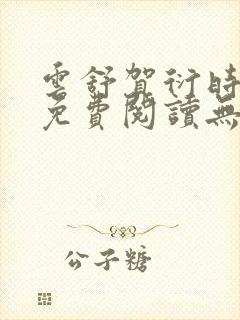 雲舒賀衍時
免費閱讀無
公子糖